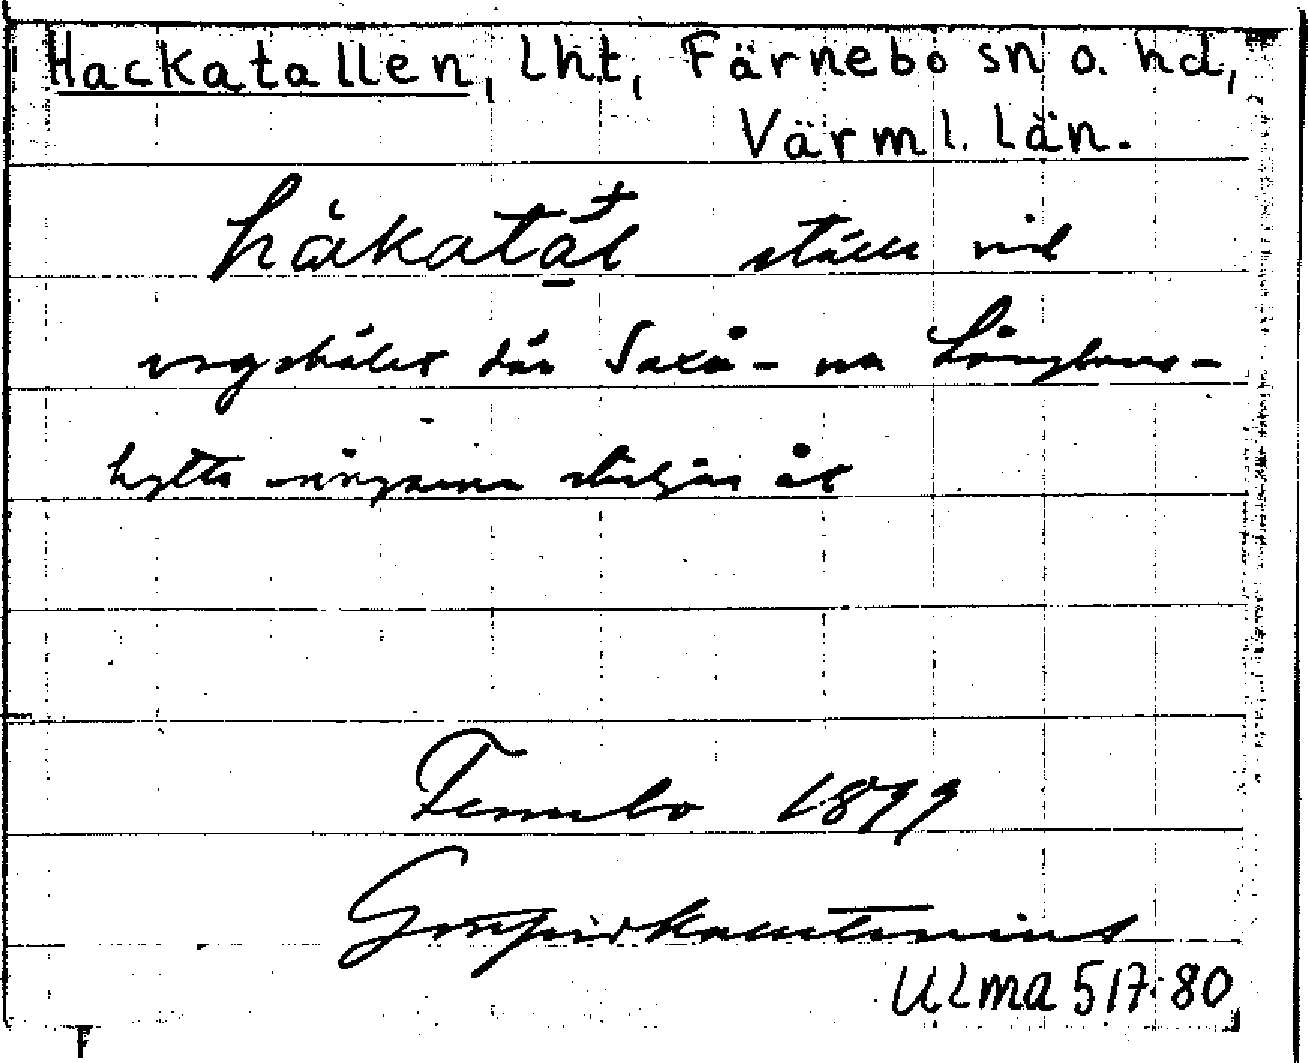 Hackatallen, lht, Färnebo sn o. hd,
Värml. län.
håkatàł ställe vid
vägskälet där Saxå- na Långbans-
hytte vägarna skiljas åt
Fernebo 1899
Ulma 517:80
F